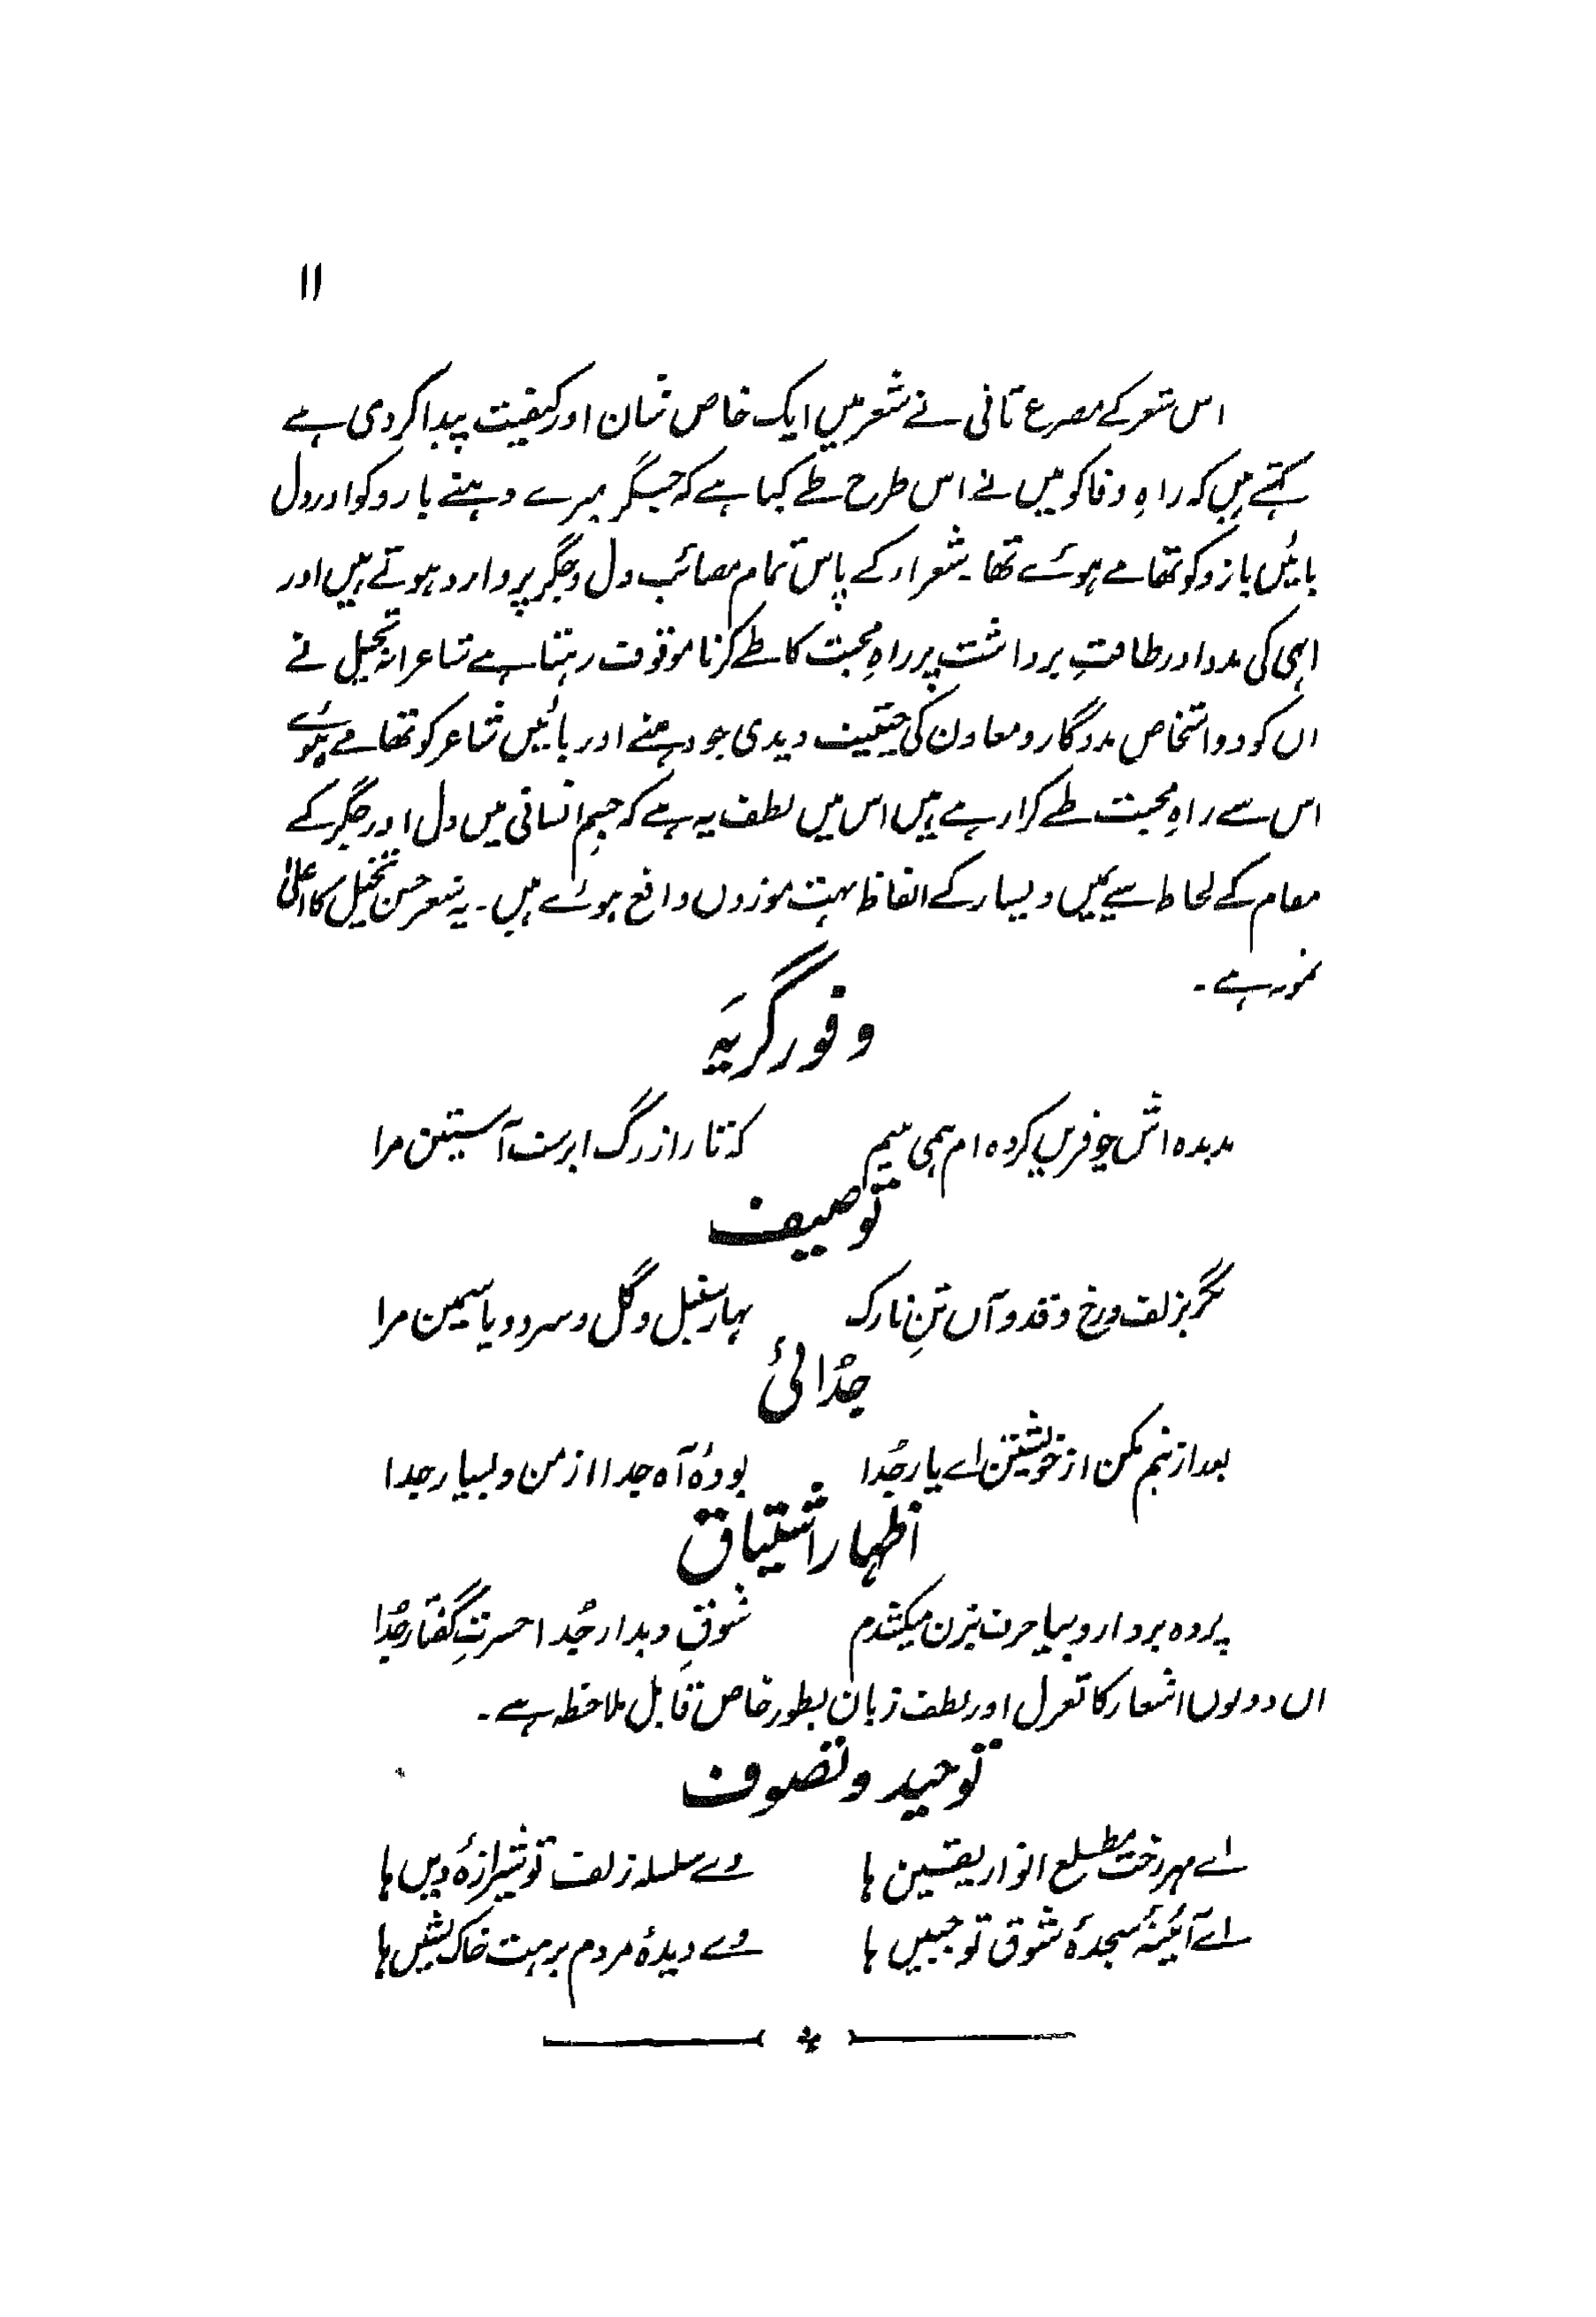 ۱۱
اس شعر کے مصرع ثانی نے شعر میں ایک خاص شان اور کیفیت پیدا کر دی ہے
کہتے ہیں کہ راہِ وفا کو میں نے اس طرح طے کیا ہے کہ جگر میرے دہنے بازو کو اور دل
بائیں بازو کو تھامے ہوئے تھا۔ شعراء کے پاس تمام مصائب دل و جگر پر وارد ہوتے ہیں اور
انہی کی مدد اور طاقتِ برداشت پر راہِ محبت کا طے کرنا موقوف رہتا ہے شاعرانہ تخیل نے
ان کو دو اشخاص مددگار و معاون کی حیثیت دیدی جو دہنے اور بائیں شاعر کو تھامے ہوئے
اس سے راہِ محبت طے کرا رہے ہیں اس میں لطف یہ ہے کہ جسمِ انسانی میں دل اور جگر کے
مقام کے لحاظ سے یمیں و یسار کے الفاظ بہت موزوں واقع ہوئے ہیں۔ یہ شعر حسن تخیل کا اعلیٰ
نمونہ ہے۔
وفور گریہ
بدیدہ اش چو قریں کردہ ام ہمی بینم کہ تار از رگ ابرست آستین مرا
توصیف
نگر بزلف و رخ و قد و آں تنِ نازک بہار سنبل و گل و سرو و یاسمین مرا
جُدائی
بعد ازینم مکن از خویشتن اے یار جُدا بودۂ آہ جدا از من و بسیار جدا
اظہار اشتیاق
پردہ بردار و بیا حرف بزن میکشدم شوقِ دیدار جُدا حسرتِ گفتار جُدا
ان دونوں اشعار کا تغزل اور لطف زبان بطور خاص قابل ملاحظہ ہے۔
توحید و تصوف
اے مہر رخت مطلع انوار یقین ہا وے سلسلہ زلف تو شیرازۂ دیں ہا
اے آئینۂ سجدۂ شوق تو جبیں ہا وے دیدۂ مردم برہت خاک نشیں ہا